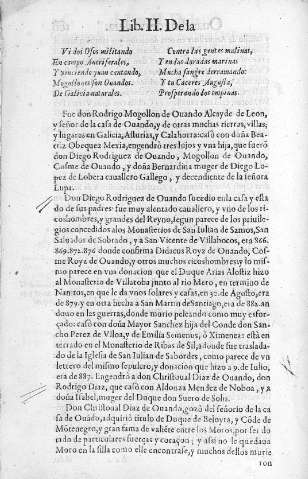 Lib. II. De la
Vi dos Osos militando
En campo Auriferales,
Y venciendo y aun cantando,
Mogollones son Ouandos,
De Galicia naturales.
Contra las gentes malinas,
Y en las duradas marinas
Mucha sangre derramando:
Y tu Caceres Augusta,
Prosperando los
Fue don Rodrigo Mogollon de Ouando Alcayde de Leon,
y señor de la casa de Ouando, y de otras muchas tierras, villas,
y lugares en Galicia, Asturias, y Calahorra: casó con doña Bea-
triz Obequez Mexia, engendró tres hijos y vna hija, que fueró
don Diego Rodriguez de Ouando, Mogollon de Ouando,
Cosme de Ouando, y doña Bernardina muger de Diego Lo-
pez de Lobera cauallero Gallego, y decendiente de la señora
Lupa.
Don Diego Rodriguez de Ouando sucedio en la casa y esta-
do de sus padres: fue muy alentado cauallero, y vno de los ri-
coshombres, y grandes del Reyno, segun parece de los priuile-
gios concedidos a los Monasterios de San Iulian de Samos, San
Saluador de Sobrado, y a San Vicente de Villahocos, era 866.
869. 872. 876 donde confirma Didacus Royz de Ouando, Cos-
me Roya de Ouando, y otros muchos ricoshombres: y lo mis-
mo parece en vna donacion que el Duque Arias Aloitiz hizo
al Monasterio de Villatoba junto al rio Mero, en termino de
Nantos, en que le da vnos solares y casas, en 30. de Agosto, era
de 879. y en otra hecha a San Martin de Santiago, era de 882. an
duuo en las guerras, donde murio peleando como muy esfor-
çado: casó con doña Mayor Sanchez hija del Conde don San-
cho Perez de Villoa, y de Emilia Semenus, ò Ximenez: està en
terrado en el Monasterio de Ribas de Sil, adonde fue traslada-
do de la Iglesia de San Iulian de Sabordes, como parece de vn
letrero del mismo sepulcro, y donacion que hizo a 9. de Iulio,
era de 887. Engendrò a don Christoual Diaz de Ouando, don
Rodrigo Diaz, que casò con Aldonza Mendez de Noboa, y a
doña Isabel, muger del Duque don Suero de Sols.
Don Christoual Diaz de Ouando, gozó del señorio de la ca
sa de Ouando, adquirió titulo de Duque de Beloyra, y Códe de
Mótenegro, y gran fama de valiéte entre los Moros, por ser do
tado de particulares fuerças y coraçon; y assi no le quedaua
Moro en la silla como ele encontrase, y muchos dellos murie
ron